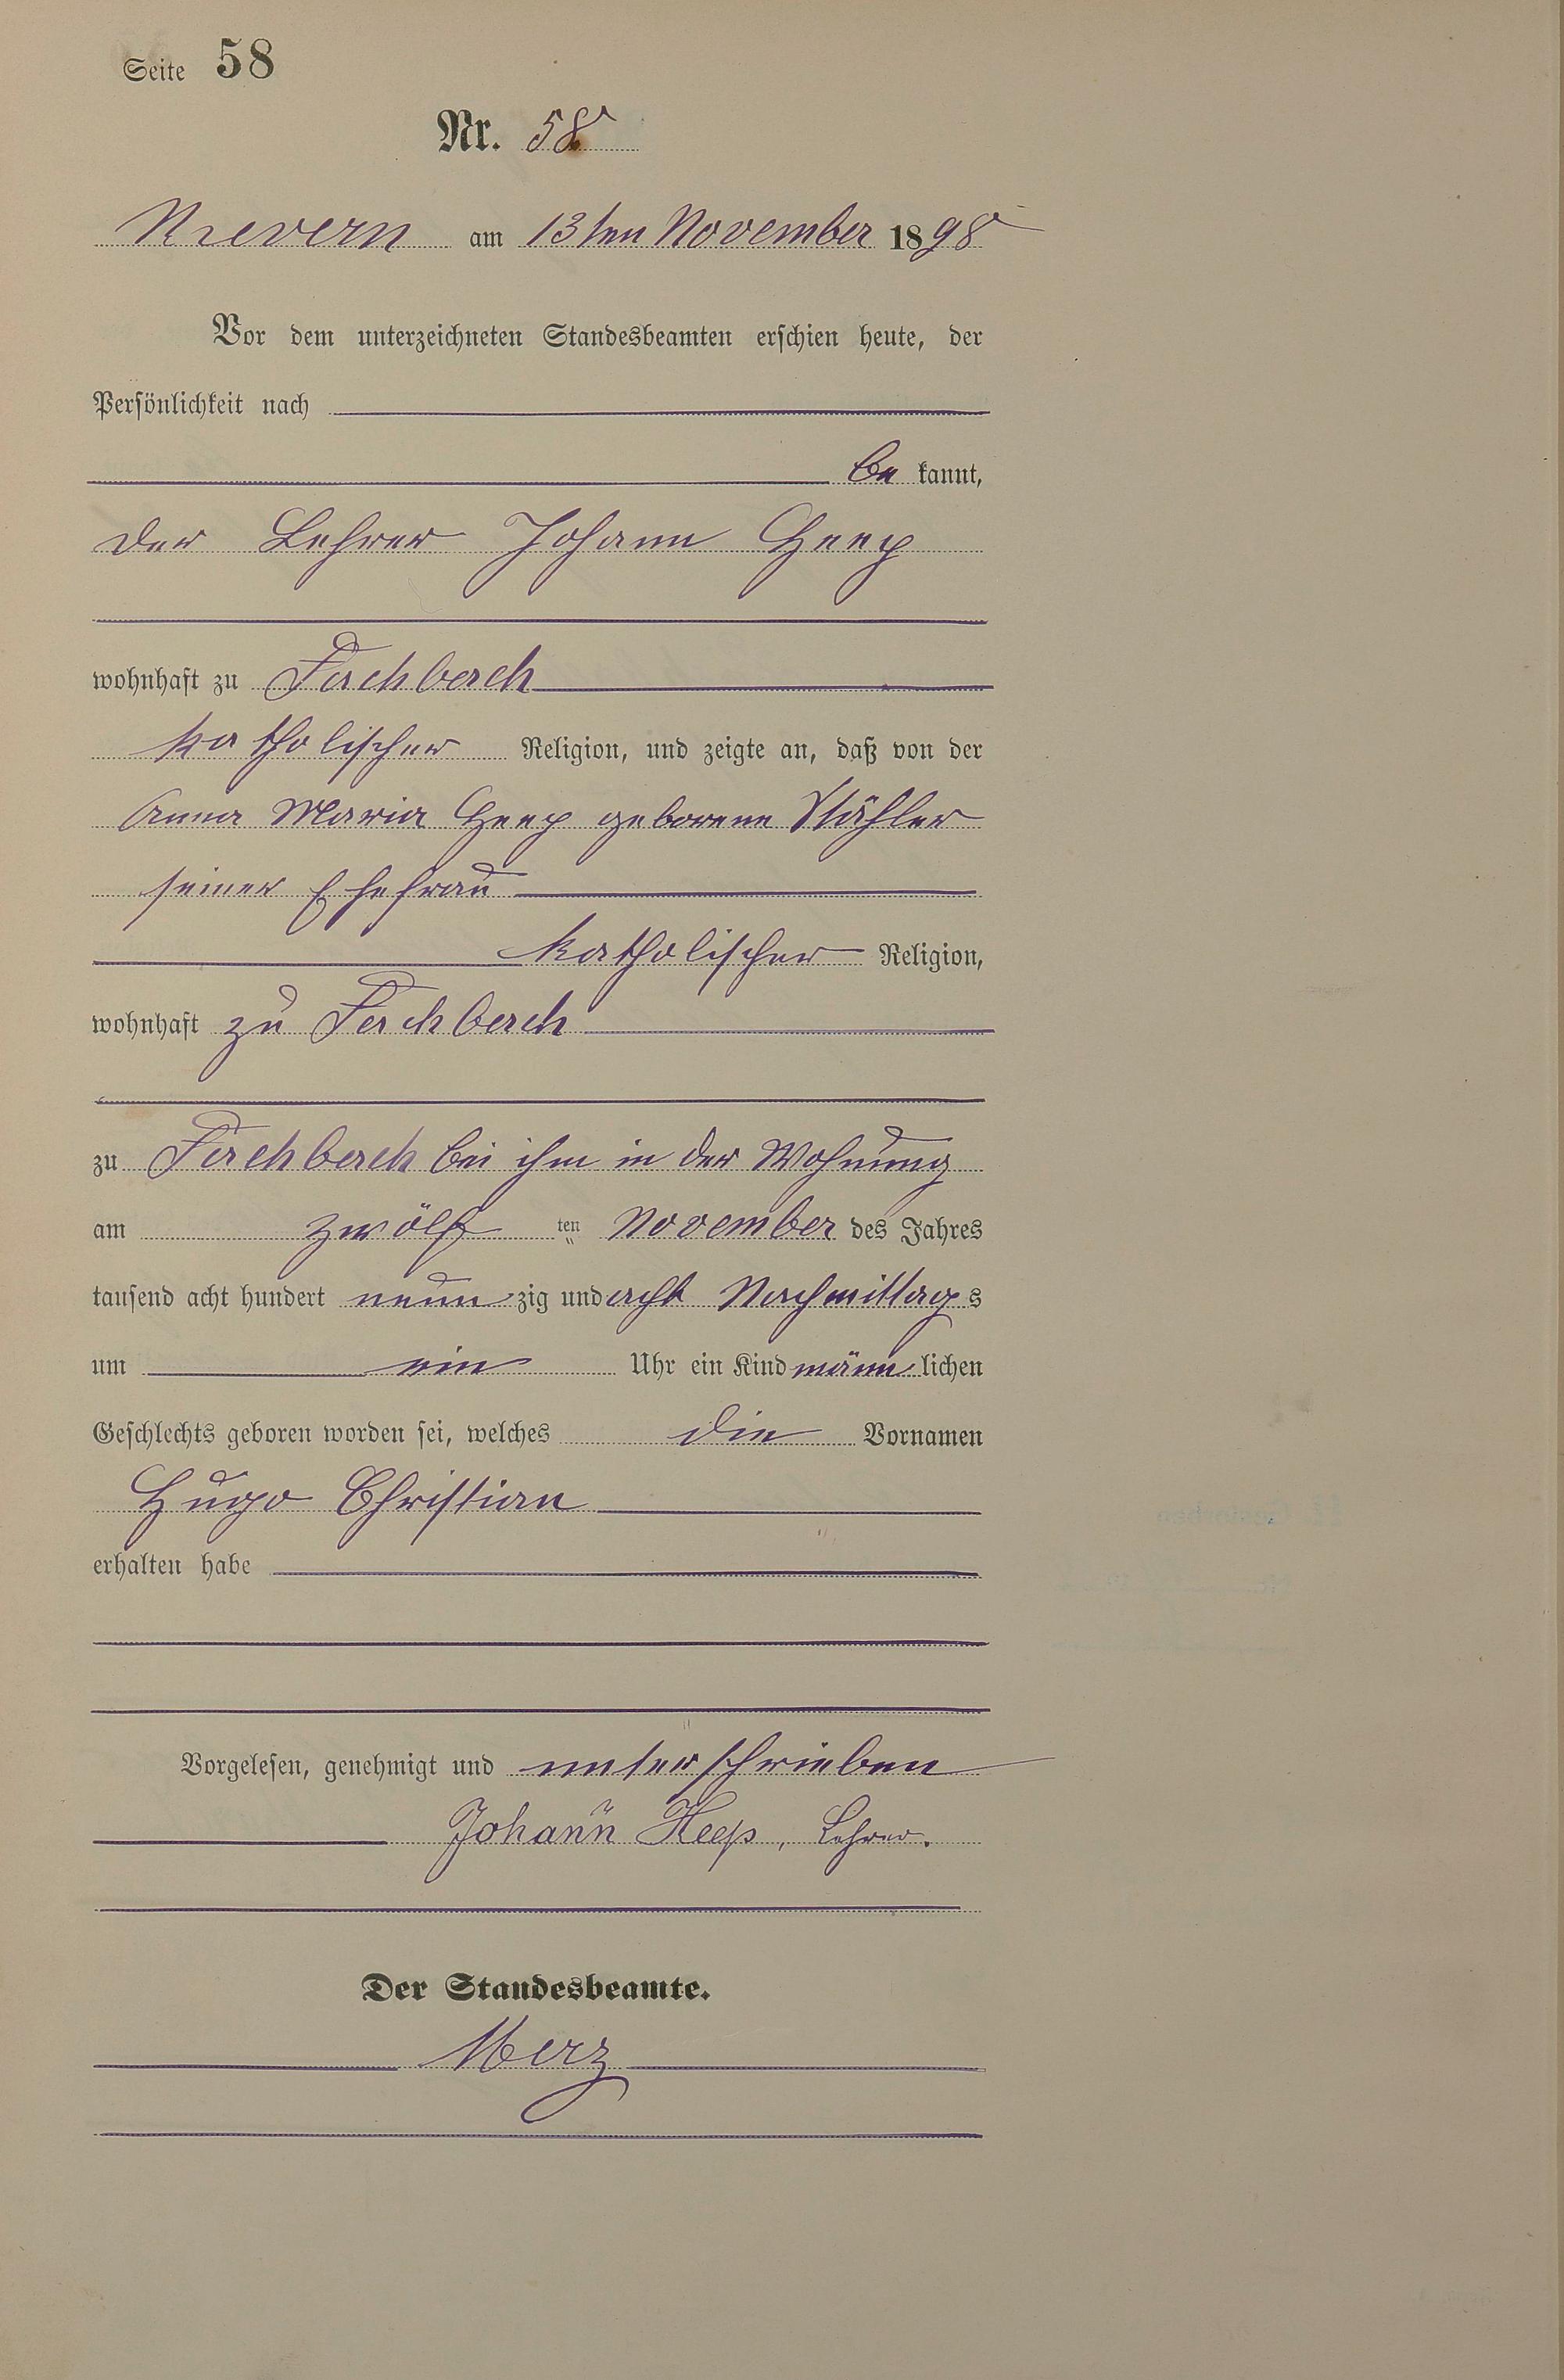 Seite 58
Nr. 58
Nievern am 13ten November 1898
Vor dem unterzeichneten Standesbeamten erschien heute, der
Persönlichkeit nach
be kannt,
der Lehrer Johann Heep
wohnhaft zu Fachbach
katholischer Religion, und zeigte an, daß von der
Anna Maria Heep geborene Stähler
seiner Ehefrau
katholischer Religion,
wohnhaft zu Fachbach
zu Fachbach bei ihm in der Wohnung
am zwölf ten November des Jahres
tausend acht hundert neun zig und acht Nachmittags
um ein Uhr ein Kind männ lichen
Geschlechts geboren worden sei, welches die Vornamen
Hugo Christian
erhalten habe
Vorgelesen, genehmigt und unterschrieben
Johann Heep, Lehrer.
Der Standesbeamte.
Merz